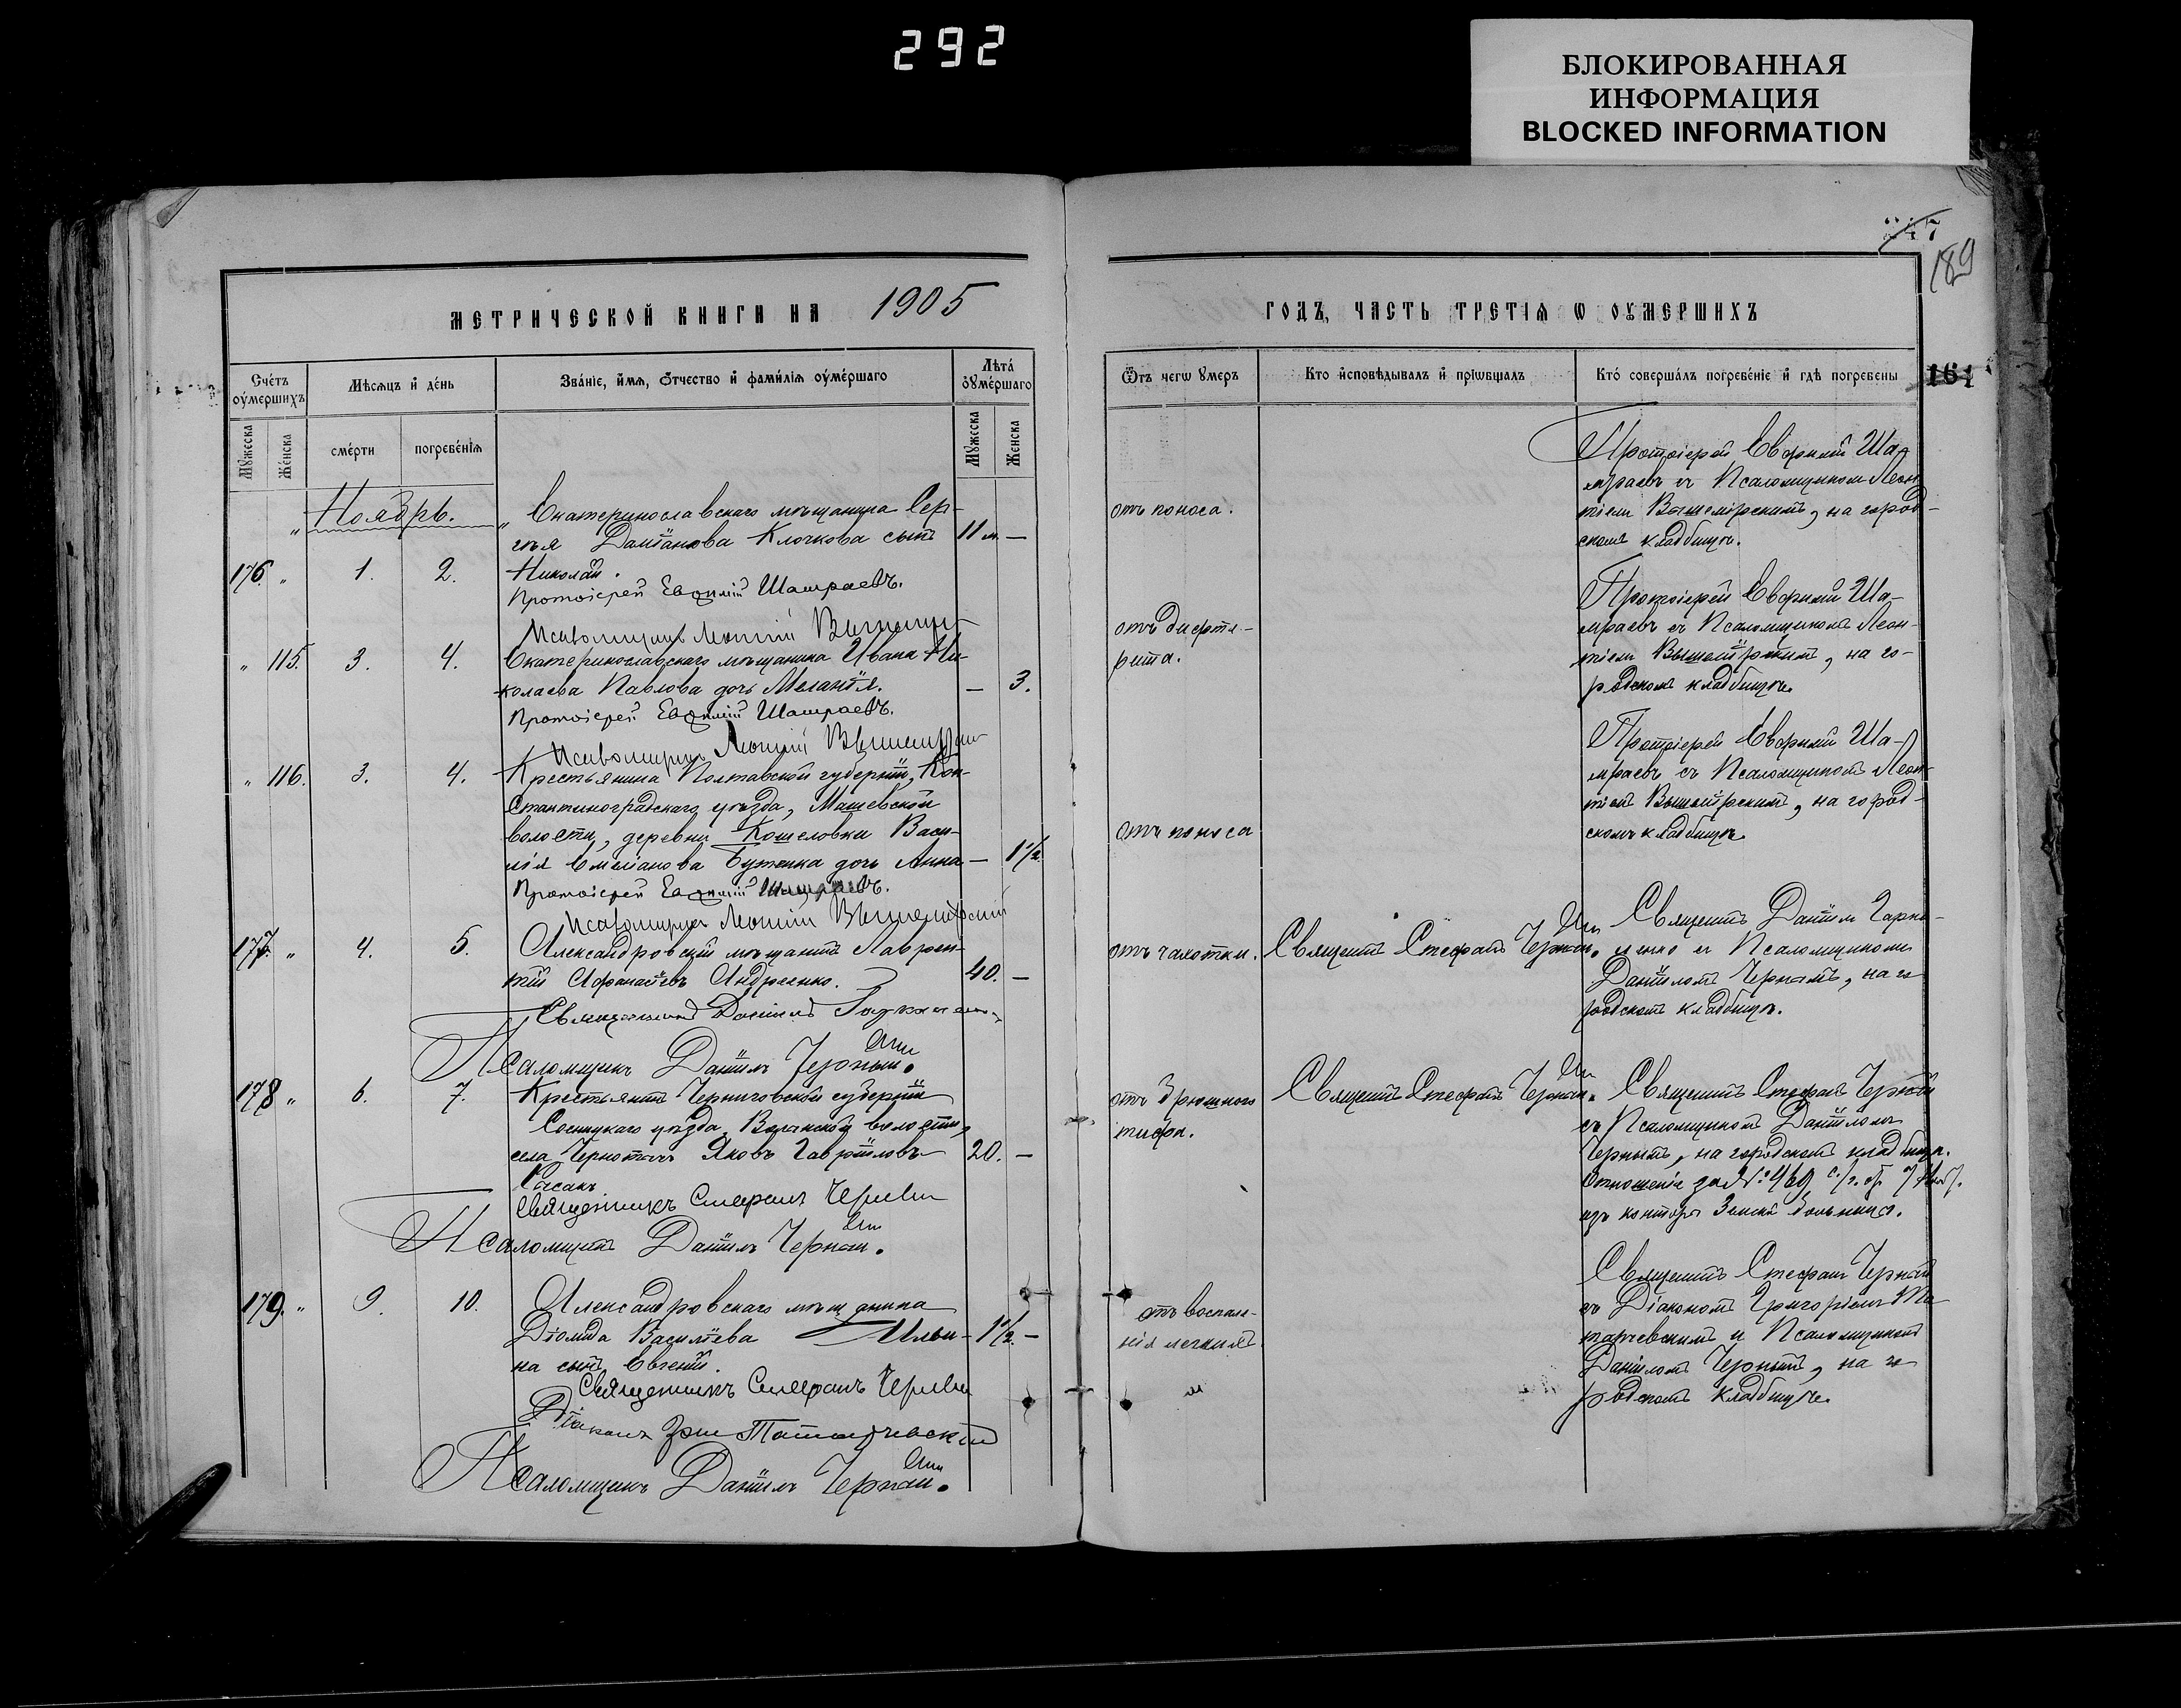 292
БЛОКИРОВАННАЯ
ИНФОРМАЦИЯ
BLOCKED INFORMATION
189
161
МЕТРИЧЕСКОЙ КНИГИ НА 1905
ГОДЪ, ЧАСТЬ ТРЕТІѦ Ѡ ОУМЕРШИХЪ
Счетъ оумершихъ
Мѣсяцъ и день
Званіе, имя, отчество и фамилія оумершаго
Лѣта оумершаго
Мужеска
Женска
смерти
погребенія
Мужеска
Женска
Ѿтъ чегѡ умеръ
Кто исповѣдывалъ и пріѡбщалъ
Кто совершалъ погребеніе и гдѣ погребены
Ноябрь.
176 " 1. 2.
Екатеринославскаго мѣщанина Сер-
гѣя Даміанова Клочкова сынъ 11 м. —
Николай.
Протоіерей Евфимій Шамраевъ.
отъ поноса.
Протоіерей Евфимій Ша-
мраевъ съ Псаломщикомъ Леон-
тіемъ Вышемірскимъ, на город-
скомъ кладбищѣ.
" 115. 3. 4.
Псаломщикъ Леонтій
Екатеринославскаго мѣщанина Ивана Ни-
колаева Павлова дочь Меланія. — 3.
Протоіерей Евфимій Шамраевъ.
отъ дифте-
рита.
Протоіерей Евфимій Ша-
мраевъ съ Псаломщикомъ Леон-
тіемъ Вышемірскимъ, на го-
родскомъ кладбищѣ.
" 116. 3. 4.
Псаломщикъ Леонтій
Крестьянина Полтавской губерніи, Кон-
стантиноградскаго уѣзда, Машевской
волости, деревни Кошеловки Васи-
лія Емеліанова Бутенка дочь Анна — 1½.
Протоіерей Евфимій Шамраевъ.
Псаломщикъ Леонтій Вышемірскій
отъ поноса
Протоіерей Евфимій Ша-
мраевъ съ Псаломщикомъ Леон-
тіемъ Вышемірскимъ, на город-
скомъ кладбищѣ.
177. " 4. 5.
Александровскій мѣщанинъ Лаврен-
тій Афанасіевъ Андреенко. 40. —
Священникъ Даніилъ
Псаломщикъ Даніилъ Черный.
отъ чахотки.
Священникъ Стефанъ
Священникъ Даніилъ
съ Псаломщикомъ
Даніиломъ Чернымъ, на го-
родскомъ кладбищѣ.
178 " 6. 7.
Крестьянинъ Черниговской губерніи
Сосницкаго уѣзда, волости,
села Яковъ Гавріиловъ 20. —
Священникъ Стефанъ
Псаломщикъ Даніилъ
отъ брюшного
тифа.
Священникъ Стефанъ
Священникъ Стефанъ
съ Псаломщикомъ Даніиломъ
Чернымъ, на городскомъ кладбищѣ.
Отношеніе за №
изъ конторы Земской больницы.
179. " 9. 10.
Александровскаго мѣщанина
Діомида Василіева Ильи- 1½. —
на сынъ Евгеній.
Священникъ Стефанъ
Діаконъ
Псаломщикъ Даніилъ
отъ воспале-
нія легкихъ.
Священникъ Стефанъ
съ Діакономъ Григоріемъ Та-
тарчевскимъ и Псаломщикомъ
Даніиломъ Чернымъ, на го-
родскомъ кладбищѣ.